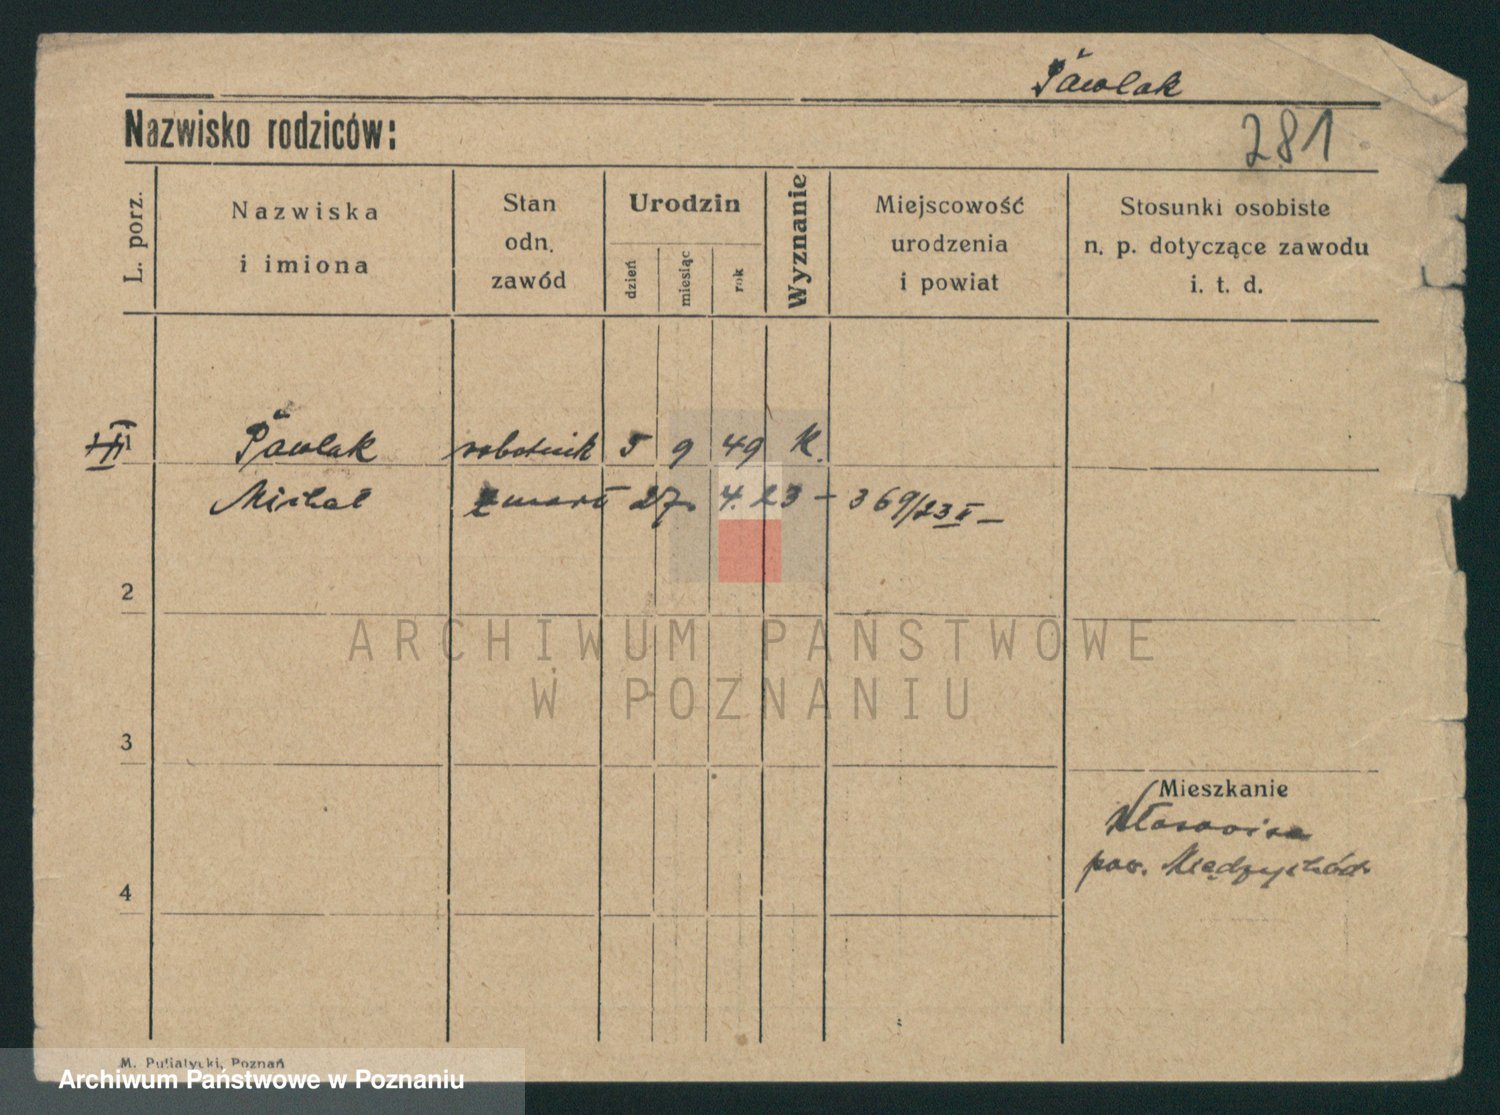 Pawlak
Nazwisko rodziców:
281
L. porz.
Nazwiska
i imiona
Stan
odn.
zawód
Urodzin
dzień
miesiąc
rok
Wyznanie
Miejscowość
urodzenia
i powiat
Stosunki osobiste
n. p. dotyczące zawodu
i. t. d.
1
Pawlak robotnik 5 9 49 K.
Michał zmarł 27. 4. 23 – 369/23 II –
2
ARCHIWUM PAŃSTWOWE
W POZNANIU
3
Mieszkanie
pow. Międzychód
4
M. Putiatycki, Poznań
Archiwum Państwowe w Poznaniu